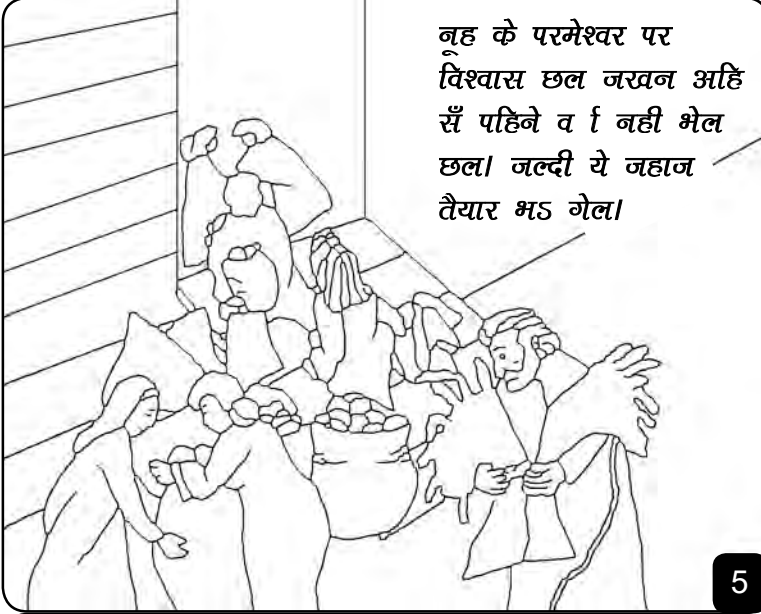 नूह के परमेश्वर पर
विश्वास छल जखन अहि
सँ पहिने व र्ा नही भेल
छल। जल्दी ये जहाज
तैयार भऽ गेल।
5